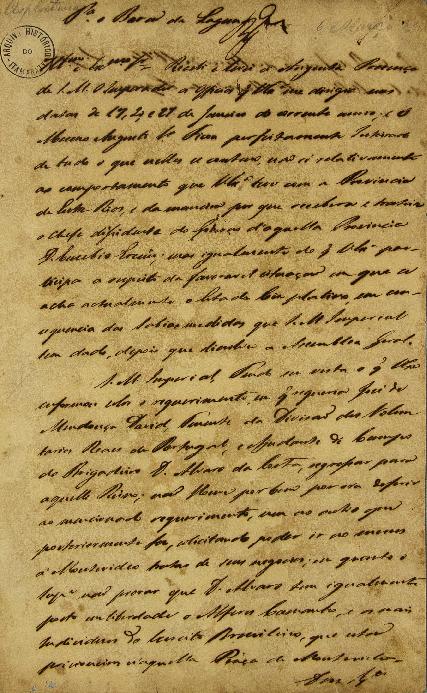 P.ª o Barão da Laguna
ARQUIVO HISTÓRICO
DO
ITAMARATY
Recebi e levei á Augusta Presença
de S. M. O Imperador os Officios q̃ V. Ex.ª me dirigiu nas
datas de 19, 24 e 27 de Janeiro do corrente anno, e O
Mesmo Augusto Sr. Ficou perfeitamente Inteirado
de tudo o que nelles se contem, não só relativamente
ao comportamento que V. Ex.ª teve com a Provincia
de Entre-Rios, e da maneira por que recebera e tratára
o Chefe dissidente do Governo d'aquella Provincia
D. Eusebio mas igualmente do q̃ V. Ex.ª par-
ticipa a respeito da favoravel situação em que se
acha actualmente o Estado Cisplatino, em con-
sequencia das sabias medidas que S. M. Imperial
tem dado, depois que dissolveu a Assemblea Geral.
S. M. Imperial, Tendo em vista o q̃ V. Ex.ª
informou sobre o requerimento, em q̃ requeria José de
Mendonça David, Tenente da Divisão dos Volun-
tarios Reaes de Portugal, e Ajudante de Campo
do Brigadeiro D. Alvaro da Costa, regressar para
aquella Praça, não Houve por bem por ora deferir
ao mencionado requerimento, nem ao outro que
posteriormente fez, solicitando poder ir ao menos
a Montevideo tratar de seus negocios, em quanto o
não provar que D. Alvaro tem igualmente
posto em liberdade o Alferes e os mais
Individuos do Exercito Brasileiro, que estão
prisioneiros n'aquella Praça de Montevideo.